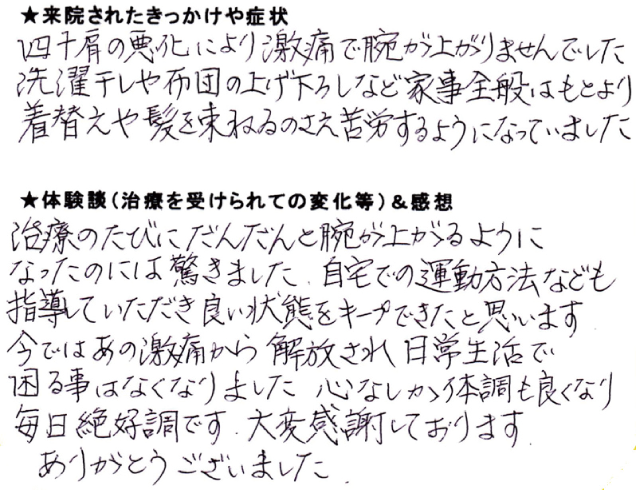 ★来院されたきっかけや症状
四十肩の悪化により激痛で腕が上がりませんでした
洗濯干しや布団の上げ下ろしなど家事全般はもとより
着替えや髪を束ねるのさえ苦労するようになっていました
★体験談(治療を受けられての変化等)&感想
治療のたびにだんだんと腕が上がるように
なったのには驚きました.自宅での運動方法なども
指導していただき良い状態をキープできたと思います
今ではあの激痛から解放され日常生活で
困る事はなくなりました 心なしか体調も良くなり
毎日絶好調です.大変感謝しております.
ありがとうございました.